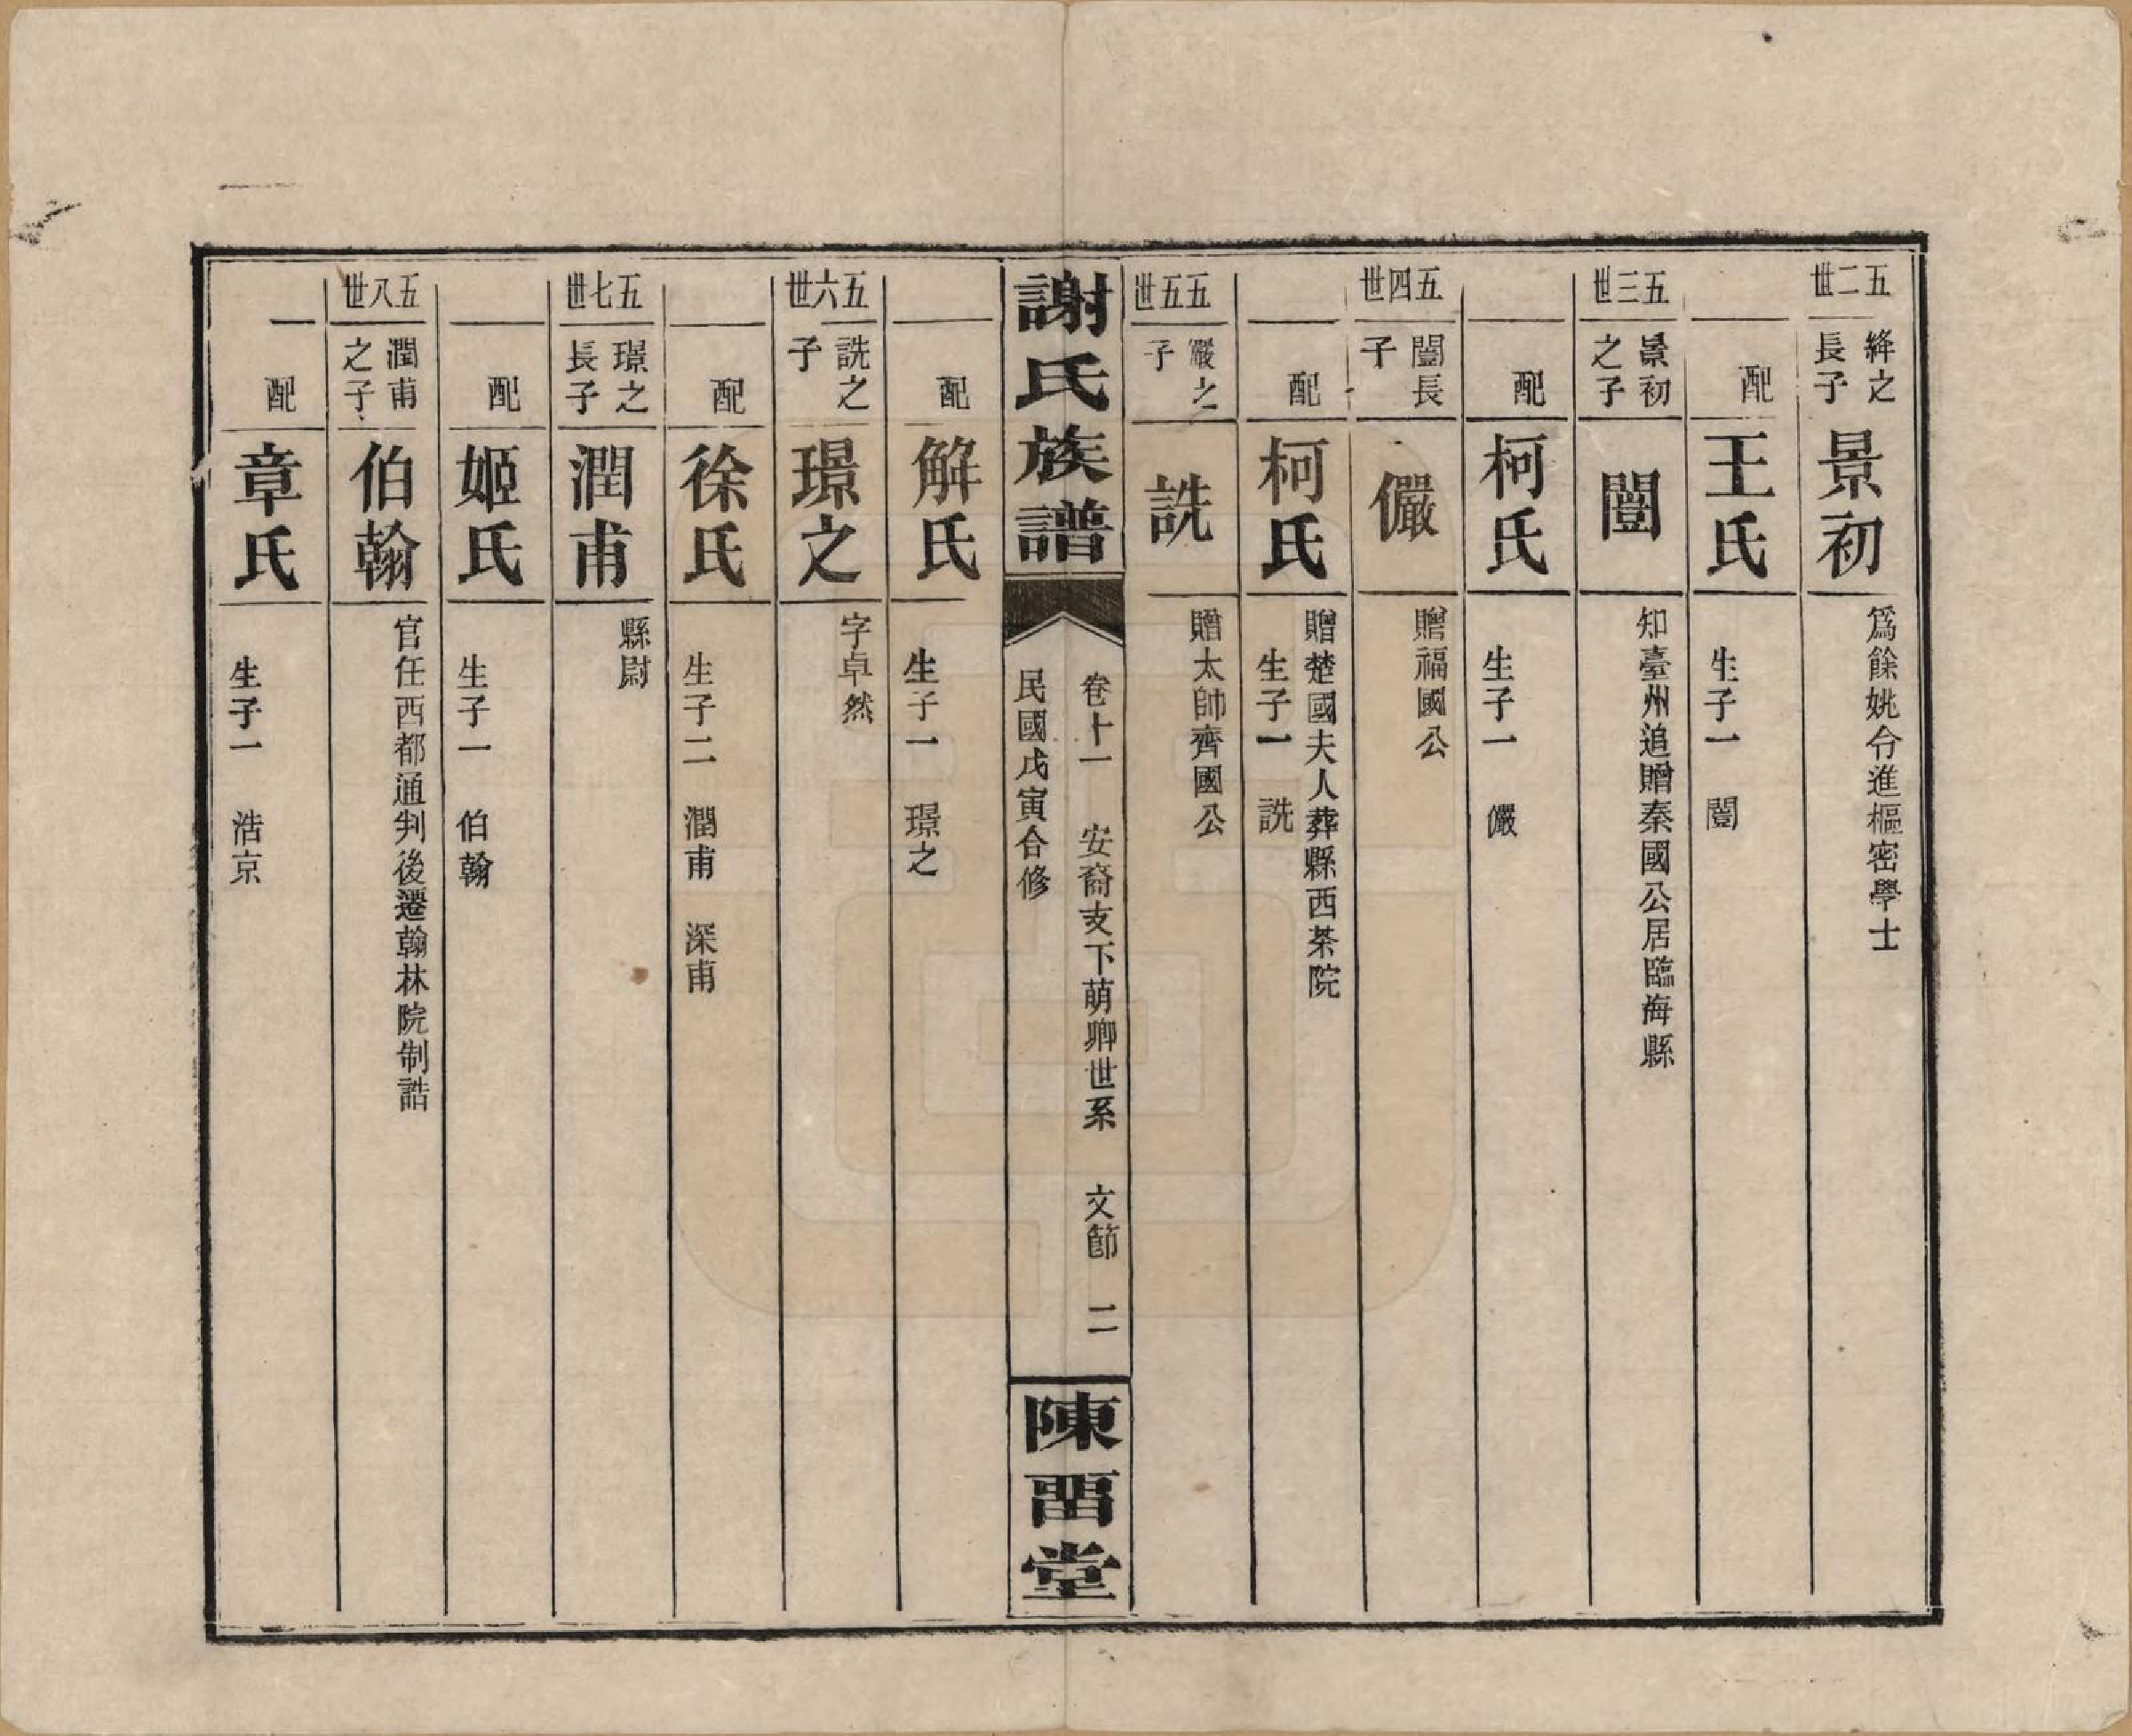 五二世
絳之長子
景初
爲餘姚令進樞密學士
配
王氏
生子一 闓
五三世
景初之子
闓
知臺州追贈秦國公居臨海縣
配
柯氏
生子一 儼
五四世
闓長子
儼
贈福國公
配
柯氏
贈楚國夫人葬縣西茶院
生子一 詵
五五世
儼之子
詵
贈太帥齊國公
謝氏族譜
卷十一 安裔支下萌卿世系 文節 二
民國戊寅合修
陳畱堂
配
解氏
生子一 璟之
五六世
詵之子
璟之
字卓然
配
徐氏
生子二 潤甫 深甫
五七世
璟之長子
潤甫
縣尉
配
姬氏
生子一 伯翰
五八世
潤甫之子
伯翰
官任西都通判後遷翰林院制誥
配
章氏
生子一 浩京